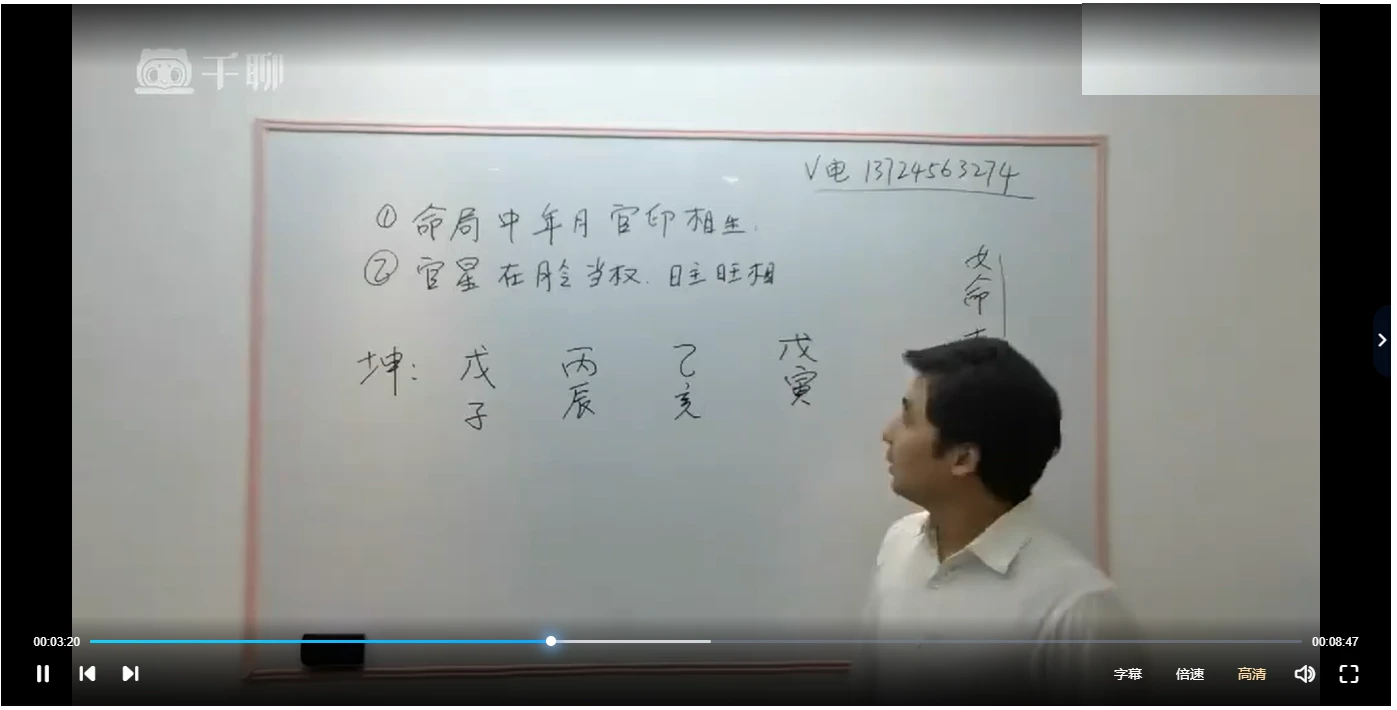 千聊
V电 13724563274
① 命局中年月官印相生.
② 官星在脸当权.日主旺相
女命
坤: 戊 丙 乙 戊
子 辰 亥 寅
00:03:20
00:08:47
字幕 倍速 高清